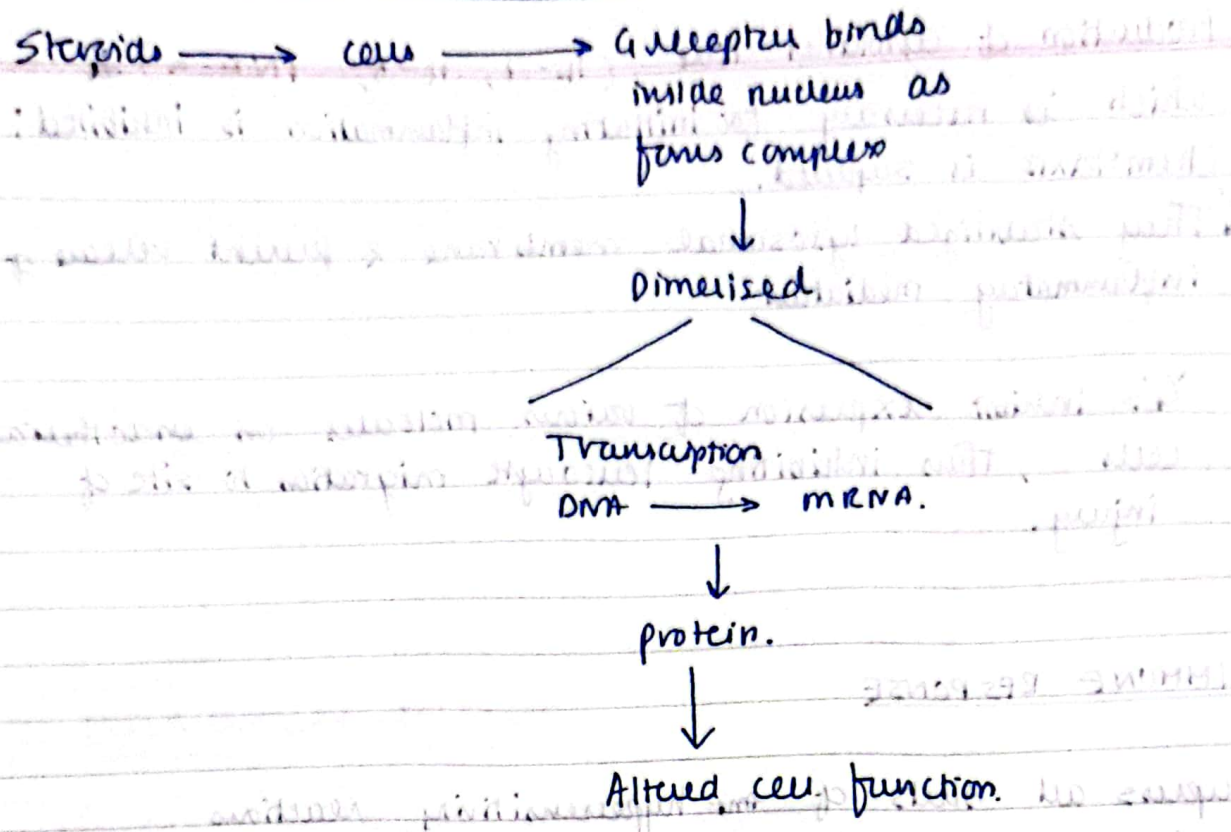 Steroids → cells → G receptor binds
inside nucleus as
forms complex
↓
Dimerised
Transcription
DNA → mRNA.
↓
protein.
↓
Altered cell function.